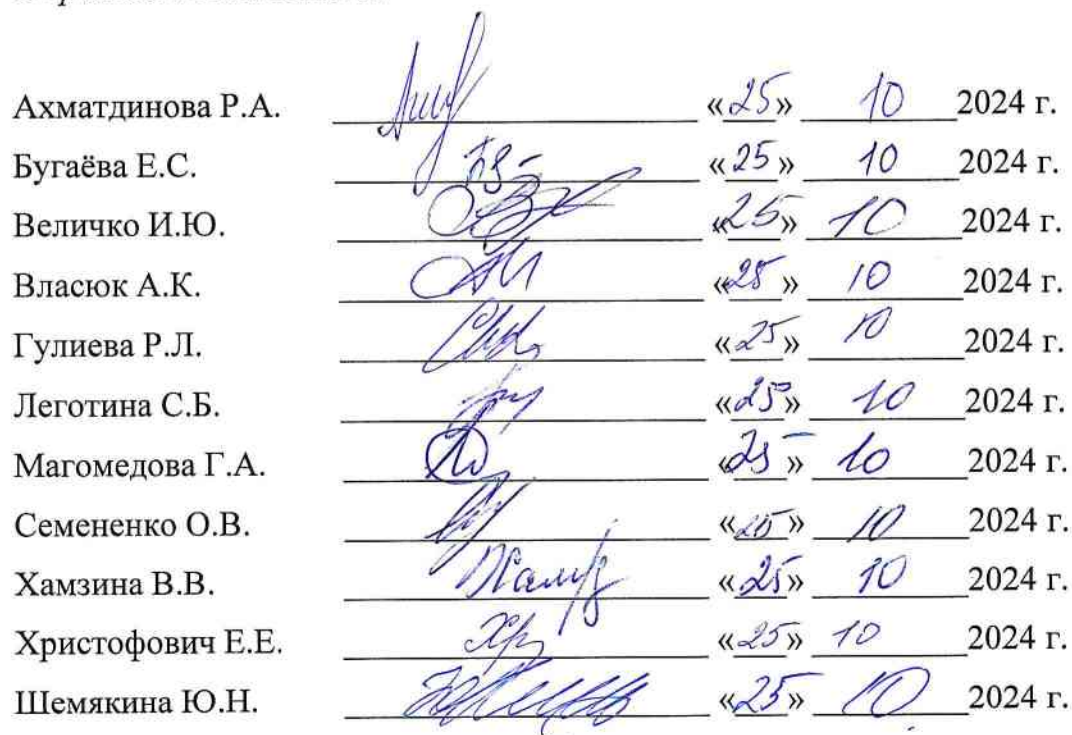 Ахматдинова Р.А. «25» 10 2024 г.
Бугаёва Е.С. «25» 10 2024 г.
Величко И.Ю. «25» 10 2024 г.
Власюк А.К. «25» 10 2024 г.
Гулиева Р.Л. «25» 10 2024 г.
Леготина С.Б. «25» 10 2024 г.
Магомедова Г.А. «25» 10 2024 г.
Семененко О.В. «25» 10 2024 г.
Хамзина В.В. «25» 10 2024 г.
Христофович Е.Е. «25» 10 2024 г.
Шемякина Ю.Н. «25» 10 2024 г.